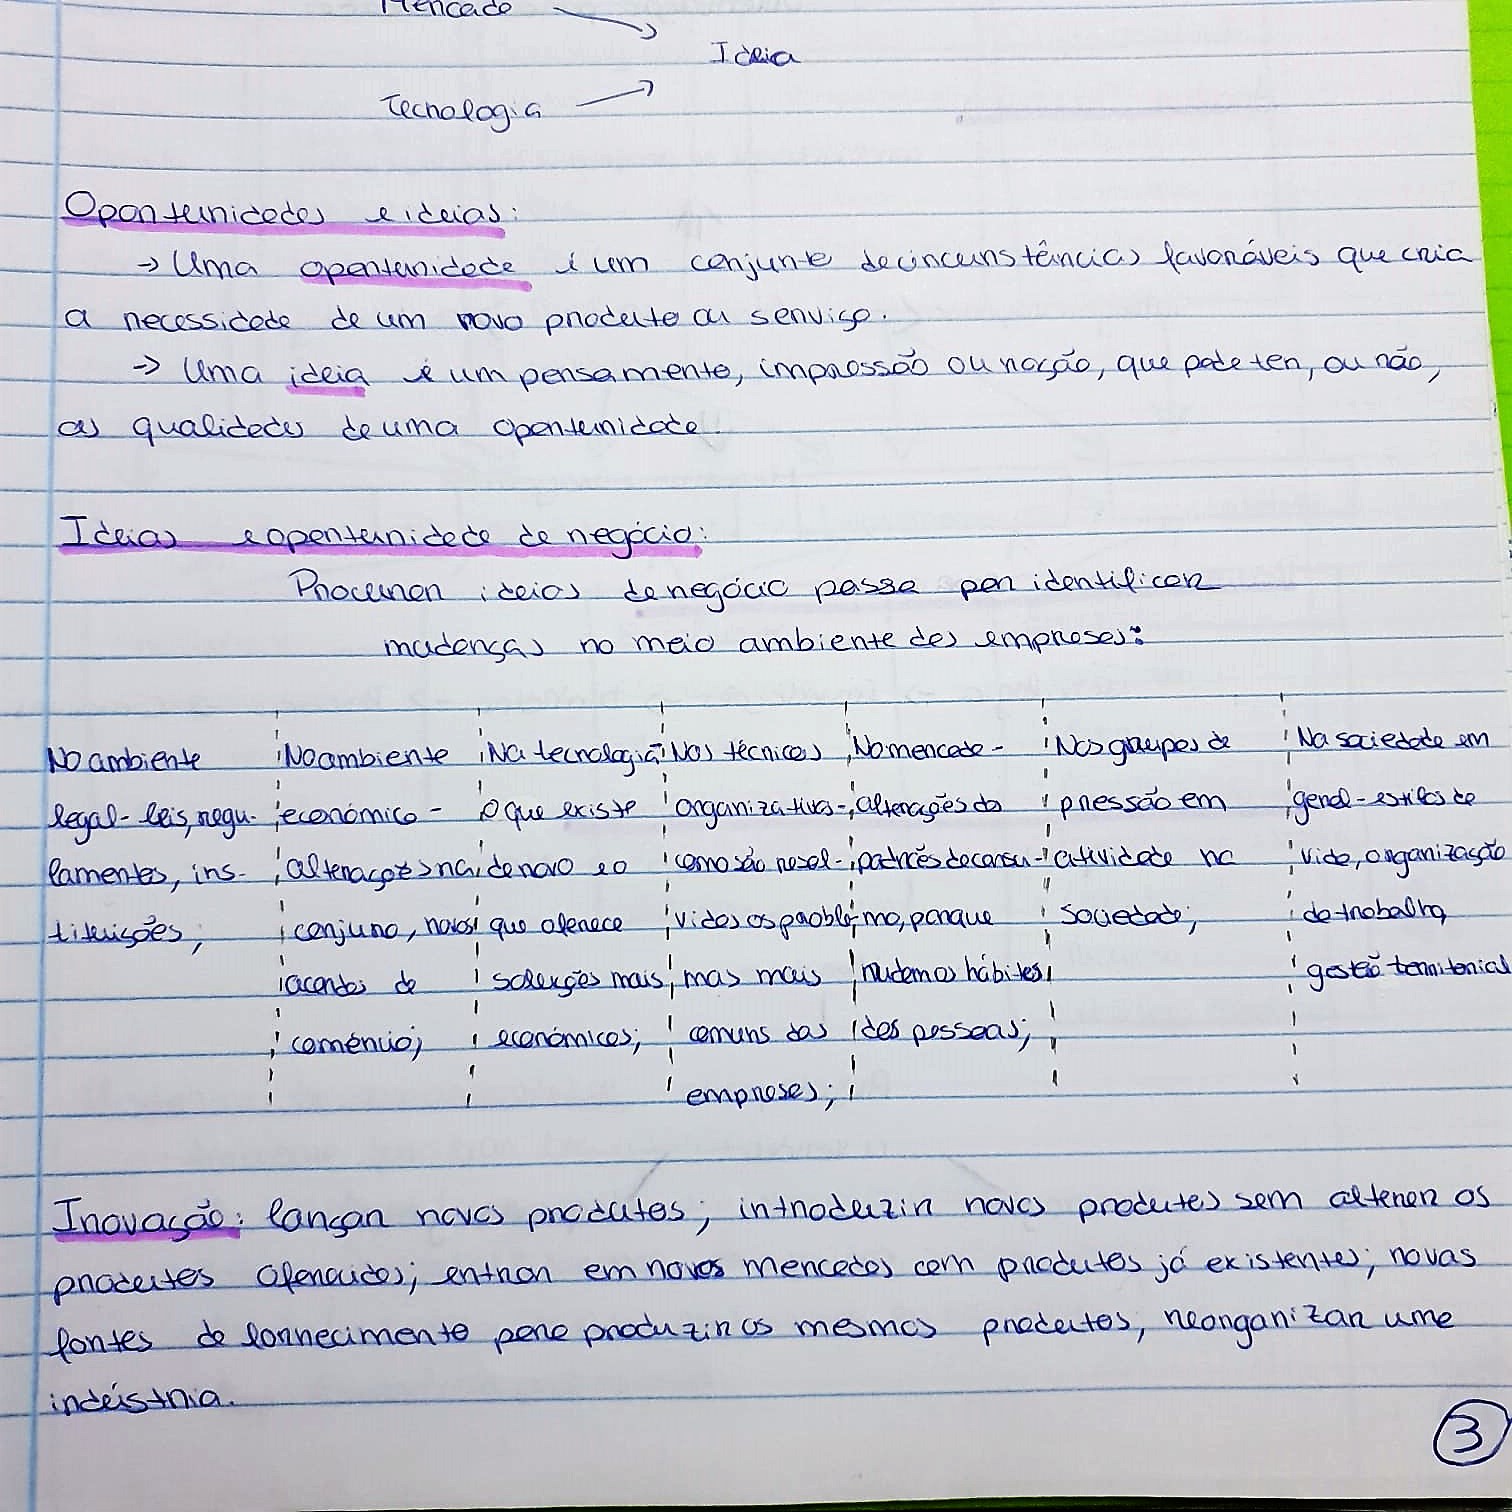 Mercado
Ideia
Tecnologia
Oportunidades e ideias:
→ Uma oportunidade é um conjunto de circunstâncias favoráveis que cria
a necessidade de um novo produto ou serviço.
→ Uma ideia é um pensamento, impressão ou noção, que pode ter, ou não,
as qualidades de uma oportunidade.
Ideias e oportunidade de negócio:
Procurar ideias de negócio passa por identificar
mudanças no meio ambiente das empresas:
No ambiente
legal - leis, regu-
lamentos, ins-
tituições;
No ambiente
económico -
alterações na
conjura, novos
acordos de
comércio;
Na tecnologia -
o que existe
de novo e o
que oferece
soluções mais
económicas;
Nas técnicas
organizativas -
como são resol-
vidos os proble-
mas mais
comuns das
empresas;
No mercado -
alterações do
padrões de consu-
mo, porque
mudam os hábitos
das pessoas;
Nos grupos de
pressão em
atividade na
sociedade;
Na sociedade em
geral - estilos de
vida, organização
do trabalho,
gestão territorial
Inovação: lançar novos produtos; introduzir novos produtos sem alterar os
produtos oferecidos; entrar em novos mercados com produtos já existentes; novas
fontes de fornecimento para produzir os mesmos produtos, reorganizar uma
indústria.
3